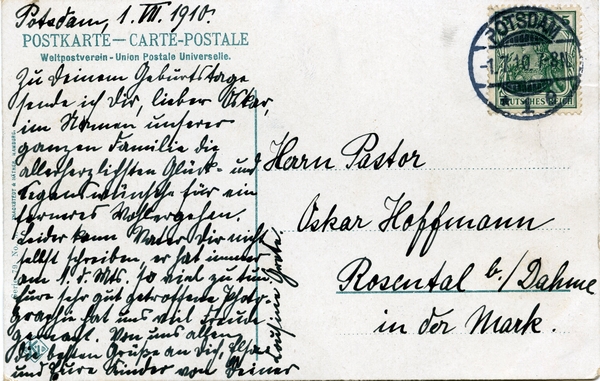 Potsdam, 1. VII. 1910.
POSTKARTE – CARTE-POSTALE
Weltpostverein – Union Postale Universelle.
Zu Deinem Geburtstage
sende ich Dir, lieber Oskar,
im Namen unserer
ganzen Familie die
allerherzlichsten Glück- und
Segenswünsche für ein
ferneres Wohlergehen.
Leider kann Vater Dir nicht
selbst schreiben, er hat immer
am 1. d. Mts. so viel zu tun
Eure sehr gut getroffene Photo-
graphie hat uns viel Freude
gemacht. Von uns allen
die besten Grüße an Dich, Elsa
und Eure Kinder von Deiner
POTSDAM
1.7.10. 7-8N.
1
5
DEUTSCHES REICH
Herrn Pastor
Oskar Hoffmann
Rosental b./Dahme
in der Mark.